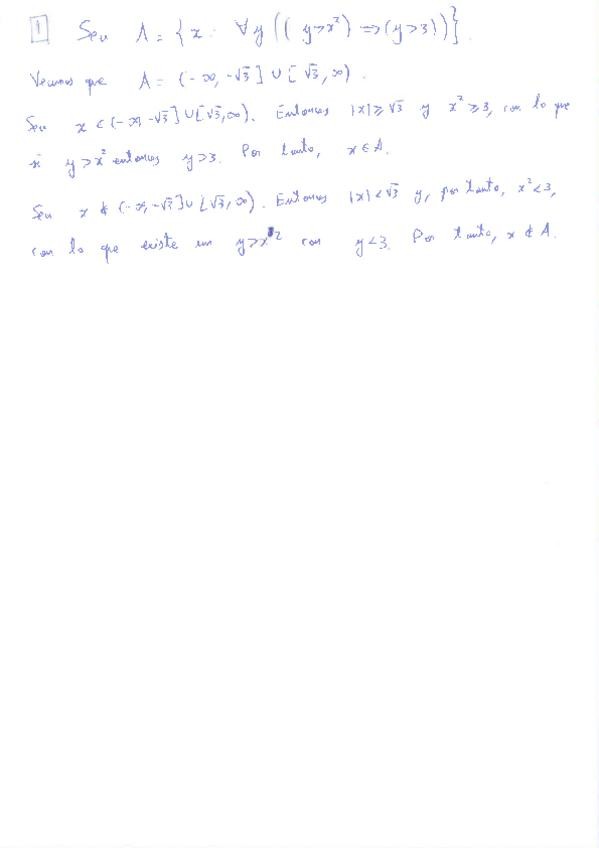 1 Sea A = {x : ∀y((y>x²) ⇒ (y>3))}.
Veamos que A = (-∞, -√3] ∪ [√3, ∞).
Sea x ∈ (-∞, -√3] ∪ [√3, ∞). Entonces |x| ≥ √3 y x² ≥ 3, con lo que
si y > x² entonces y > 3. Por tanto, x ∈ A.
Sea x ∉ (-∞, -√3] ∪ [√3, ∞). Entonces |x| < √3 y, por tanto, x² < 3,
con lo que existe un y > x² con y < 3. Por tanto, x ∉ A.